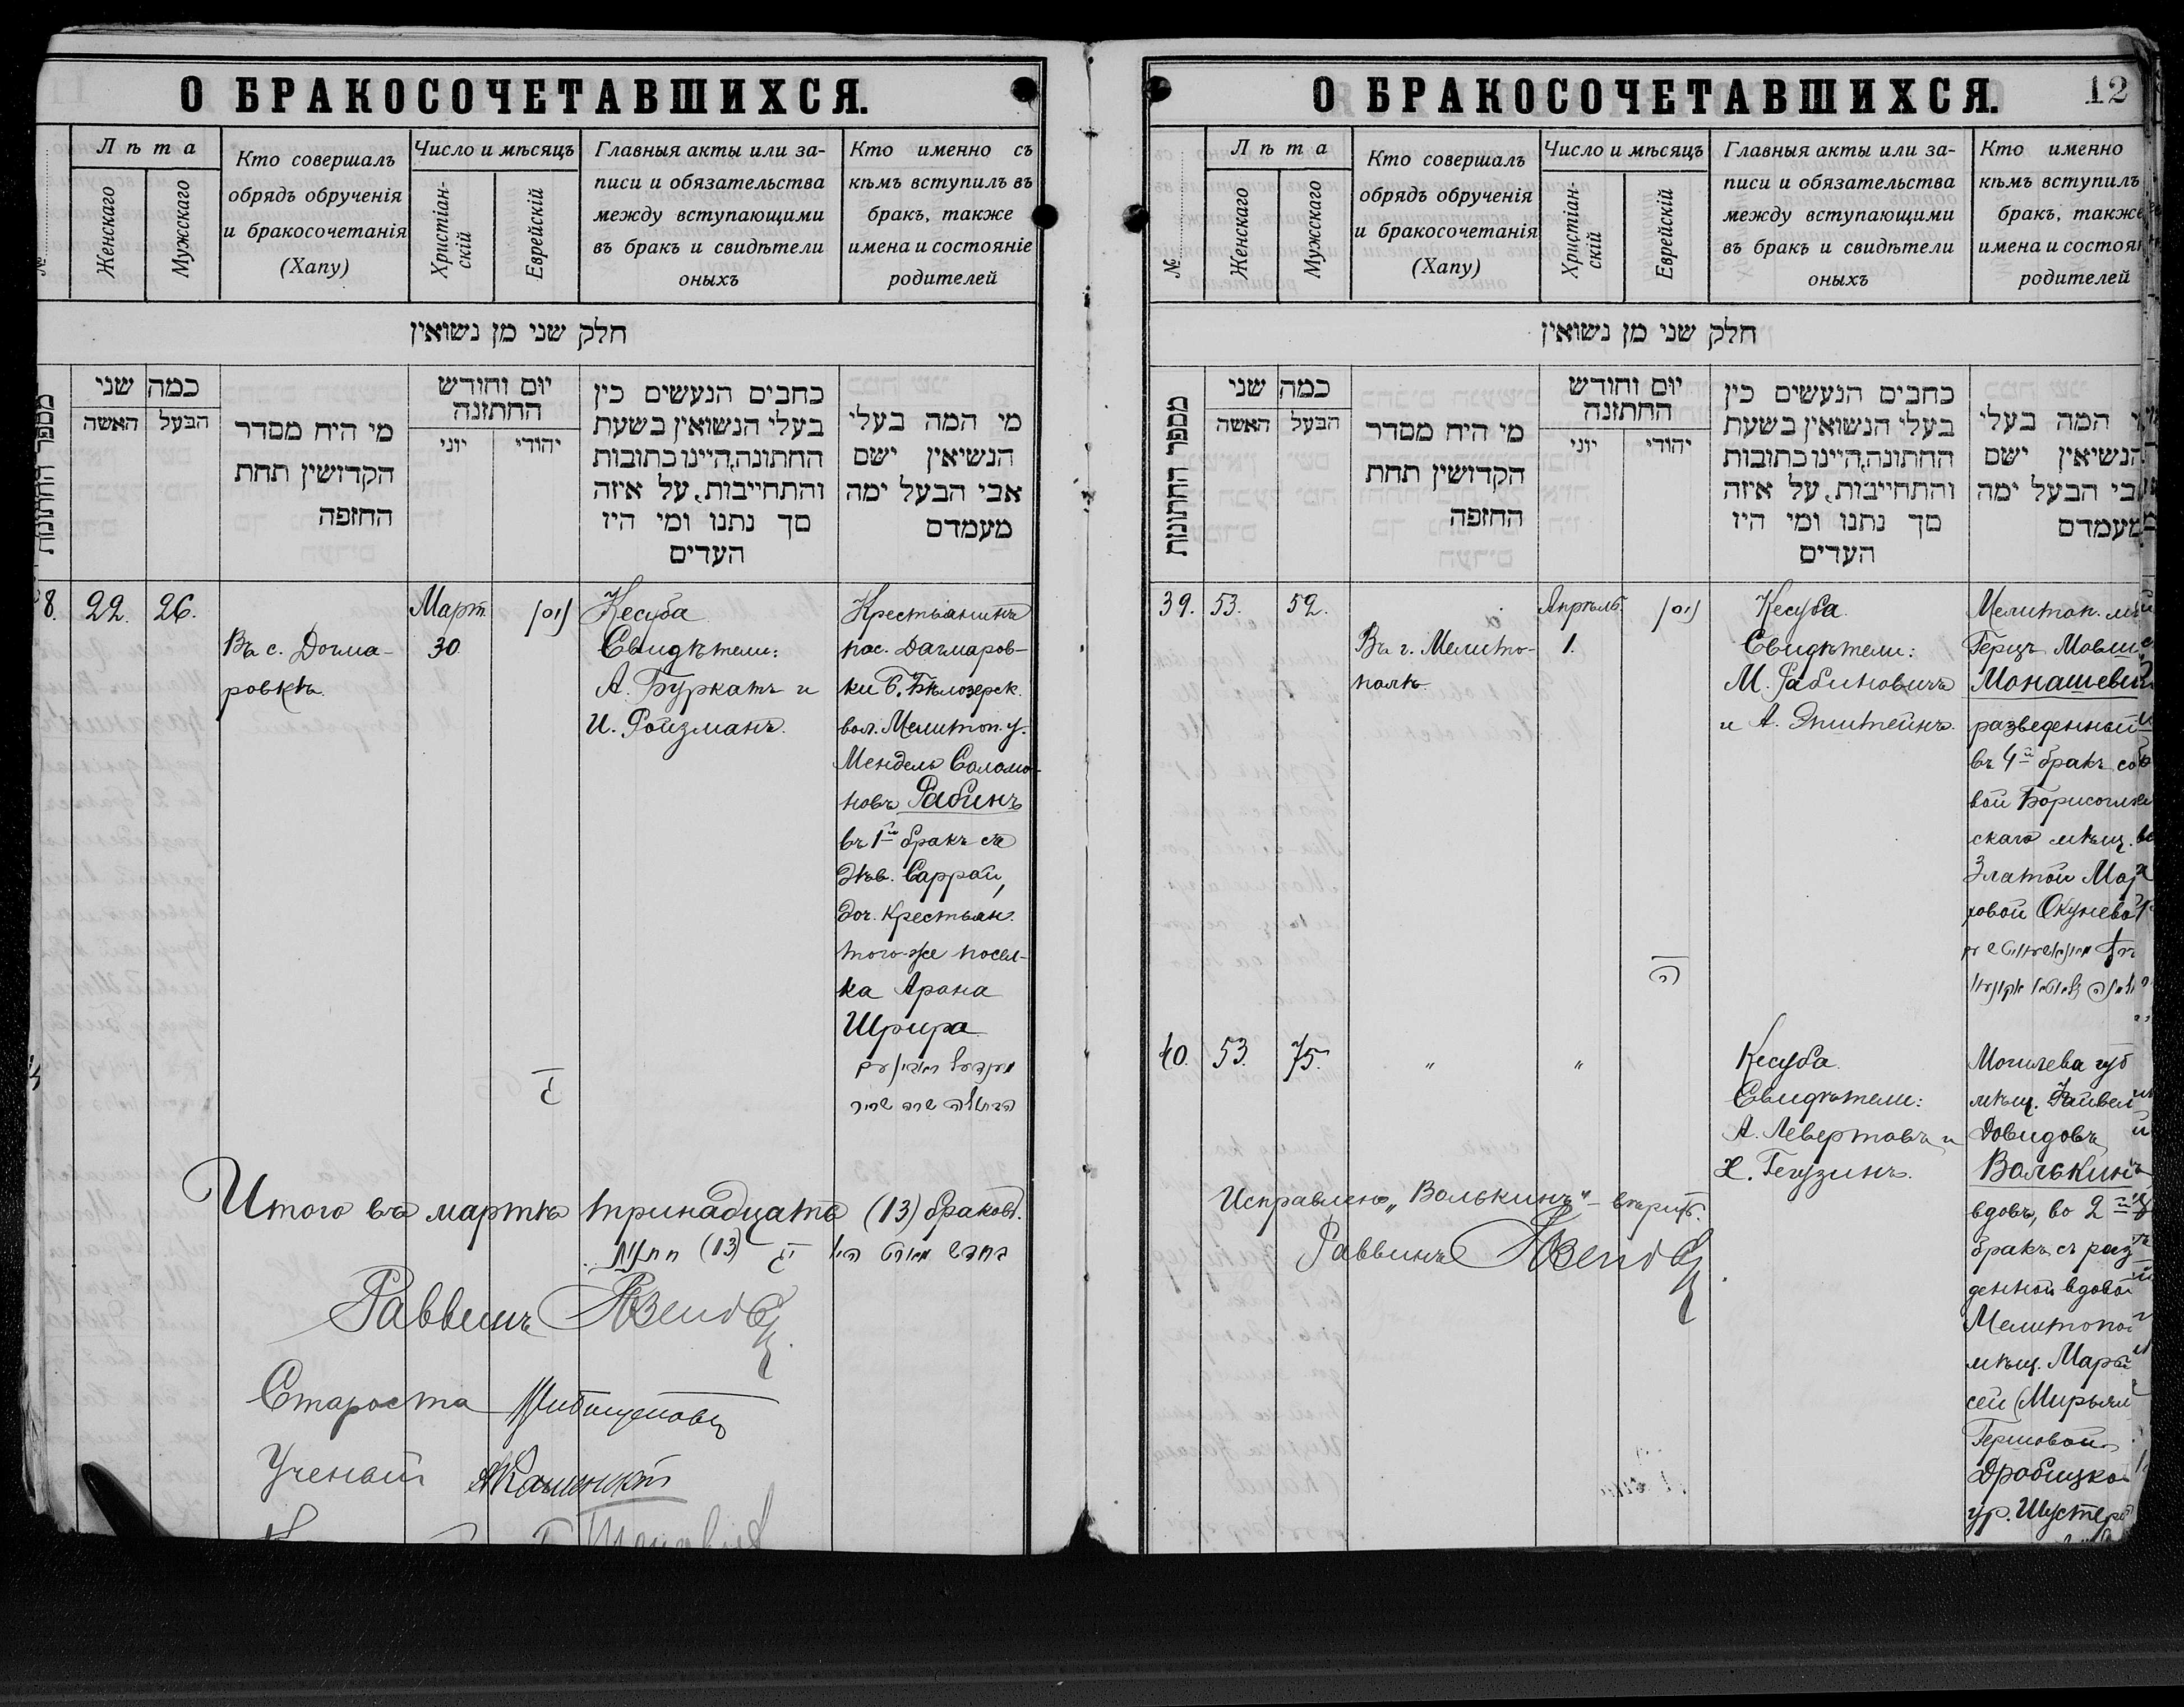 О БРАКОСОЧЕТАВШИХСЯ.
№
Лѣта
Женскаго
Мужскаго
Кто совершалъ
обрядъ обрученія
и бракосочетанія
(Хапу)
Число и мѣсяцъ
Христіан-
скій
Еврейскій
Главныя акты или за-
писи и обязательства
между вступающими
въ бракъ и свидѣтели
оныхъ
Кто именно съ
кѣмъ вступилъ въ
бракъ, также
имена и состояніе
родителей
חלק שני מן נשואין
מספר החתונות
כמה שני
הבעל
האשה
מי היח מסדר
הקדושין תחת
החזפה
יום וחודש
החתזנה
יהודי
יוני
כחבים הנעשים כין
בעלי הנשואין בשעת
החתונה,היינו כתובות
והתחייבות, על איזה
סך נתנו ומי היז
העדים
מי המה בעלי
הנשיאין ישם
אבי הבעל ימה
מעמדם
8.
22.
26.
Въ с. Догма-
ровкѣ.
Март.
30.
ניסן
Кесуба
Свидѣтели:
А. Буркатъ и
И. Ройзманъ.
Крестьянинъ
пос. Дагмаров-
ки Б. Бѣлозерск.
вол. Мелитоп. у.
Мендель Соломо-
новъ Рабинъ
въ 1й бракъ съ
дѣв. Саррой,
доч. крестьян.
того-же посел-
ка Арона
Шрира
Итого въ мартѣ тринадцать (13) браковъ.
Раввинъ
Староста
Ученый
О БРАКОСОЧЕТАВШИХСЯ.
12
№
Лѣта
Женскаго
Мужскаго
Кто совершалъ
обрядъ обрученія
и бракосочетанія
(Хапу)
Число и мѣсяцъ
Христіан-
скій
Еврейскій
Главныя акты или за-
писи и обязательства
между вступающими
въ бракъ и свидѣтели
оныхъ
Кто именно
кѣмъ вступилъ
бракъ, также
имена и состоя
родителей
חלק שני מן נשואין
מספר החתונות
כמה שני
הבעל
האשה
מי היח מסדר
הקדושין תחת
החזפה
יום וחודש
החתזנה
יהודי
יוני
כחבים הנעשים כין
בעלי הנשואין בשעת
החתונה,היינו כתובות
והתחייבות, על איזה
סך נתנו ומי היז
העדים
המה בעלי
הנשיאין ישם
אבי הבעל ימה
מעמדם
39.
53.
52.
Въ г. Мелито-
полѣ.
Апрѣль.
1.
ניסן
ה
Кесуба.
Свидѣтели:
М. Рабиновичъ
и А. Эпштейнъ.
Мелитоп.
Герцъ Мовш
Монашеви
разведенный
въ 4й бракъ со
вой Борисоглѣб
скаго мѣщ.
Златой Мар
ковой Окунево
40.
53.
75.
"
"
Кесуба.
Свидѣтели:
А. Левертовъ и
Х. Гегузинъ.
Могилева губ
мѣщ. Файвел
Довидовъ
Волькинъ
вдовъ, во 2й
бракъ съ раз
денной вдовой
Мелитопо
мѣщ. Марь
сей (Мирьям
Гершовой
Дробицко
ур. Шустер
Исправлено „Волькинъ“ – вѣрить.
Раввинъ